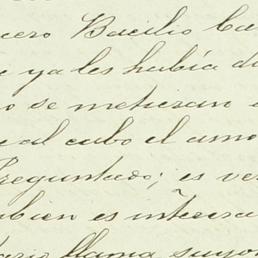 cero Bacilio Ca
e ya les había di
o se metieran e
e al cabo el amo
Preguntado; es ver
mbien es interesa
llama suyo